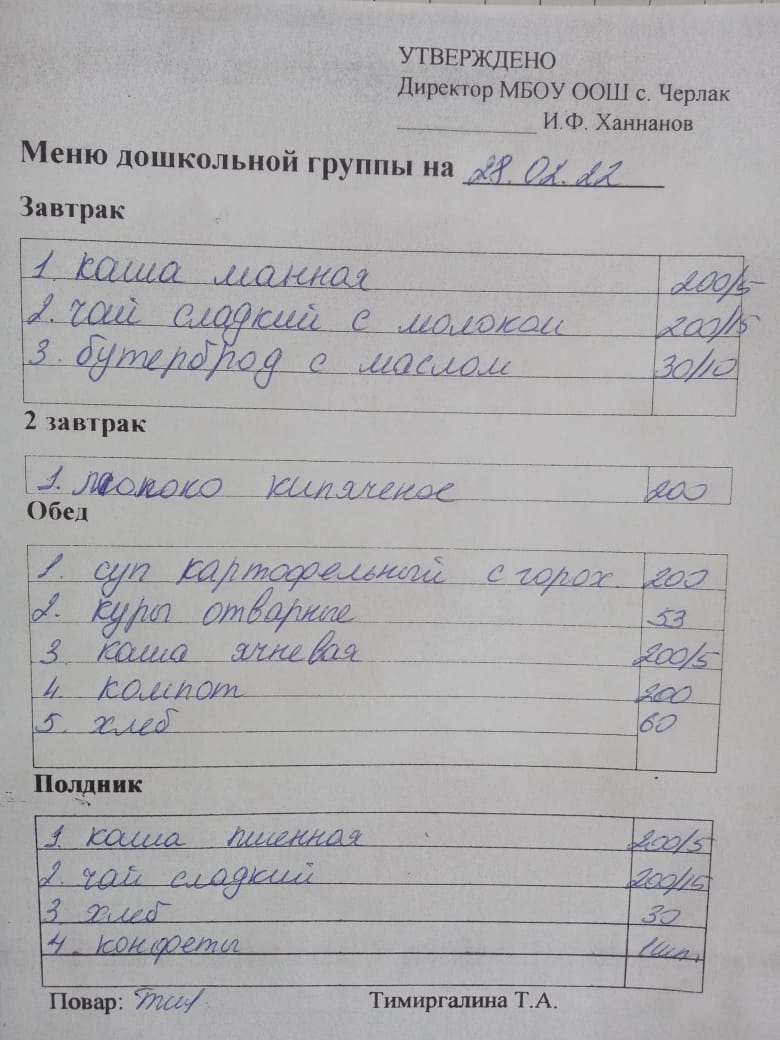 УТВЕРЖДЕНО
Директор МБОУ ООШ с. Черлак
____________ И.Ф. Ханнанов
Меню дошкольной группы на 28.02.22
Завтрак
1. каша манная 200/5
2. чай сладкий с молоком 200/15
3. бутерброд с маслом 30/10
2 завтрак
1. молоко кипяченое 200
Обед
1. суп картофельный с горох. 200
2. куры отварные 53
3. каша ячневая 200/5
4. компот 200
5. хлеб 60
Полдник
1. каша пшенная 200/5
2. чай сладкий 200/15
3. хлеб 30
4. конфеты 1шт.
Повар: Тимиргалина Т.А.